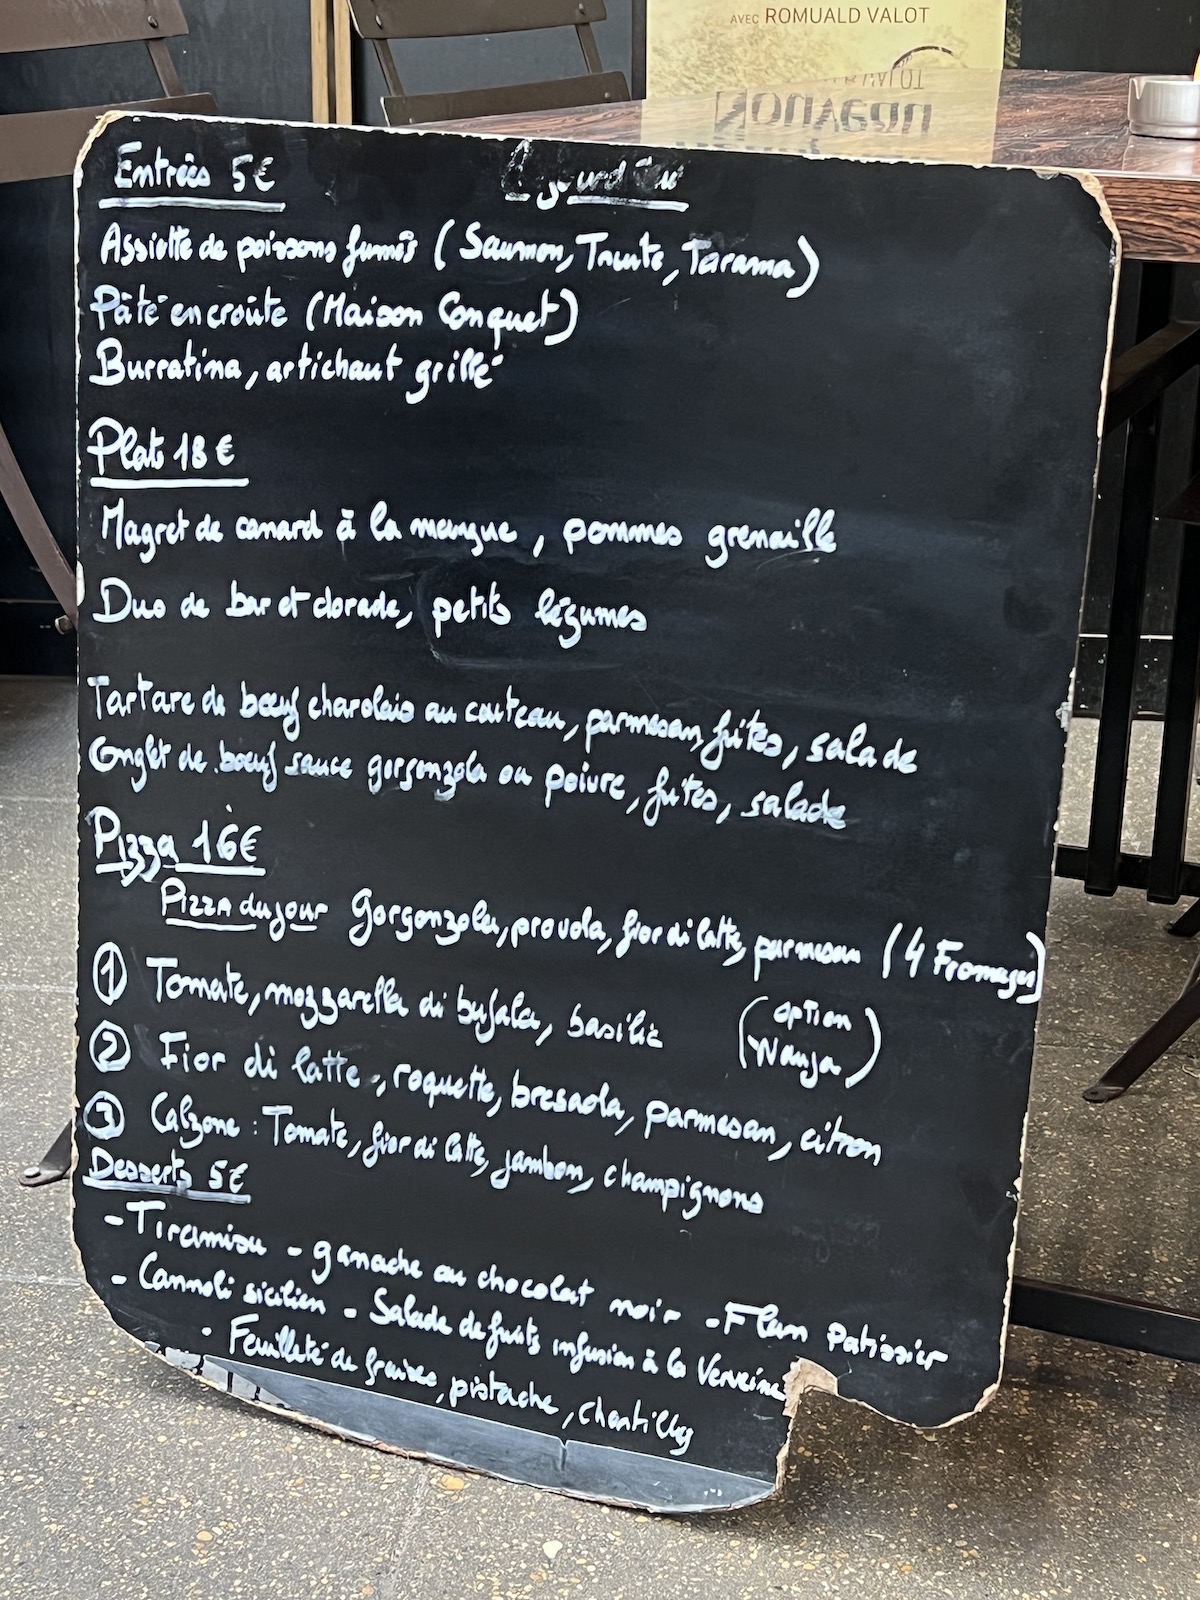 AVEC ROMUALD VALOT
Nouveau
Entrées 5€
Assiette de poissons fumés (Saumon, Truite, Tarama)
Pâté en croûte (Maison Conquet)
Burratina, artichaut grillé
Plat 18€
Magret de canard à la mangue, pommes grenaille
Duo de bar et dorade, petits légumes
Tartare de bœuf charolais au couteau, parmesan, frites, salade
Onglet de bœuf sauce gorgonzola ou poivre, frites, salade
Pizza 16€
Pizza du jour Gorgonzola, provola, fior di latte, parmesan (4 Fromages)
① Tomate, mozzarella di bufala, basilic (option Nduja)
② Fior di latte, roquette, bresaola, parmesan, citron
③ Calzone : Tomate, fior di latte, jambon, champignons
Desserts 5€
- Tiramisu - ganache au chocolat noir - Flan Patissier
- Cannoli sicilien - Salade de fruits infusion à la Verveine
- Feuilleté de fraises, pistache, chantilly